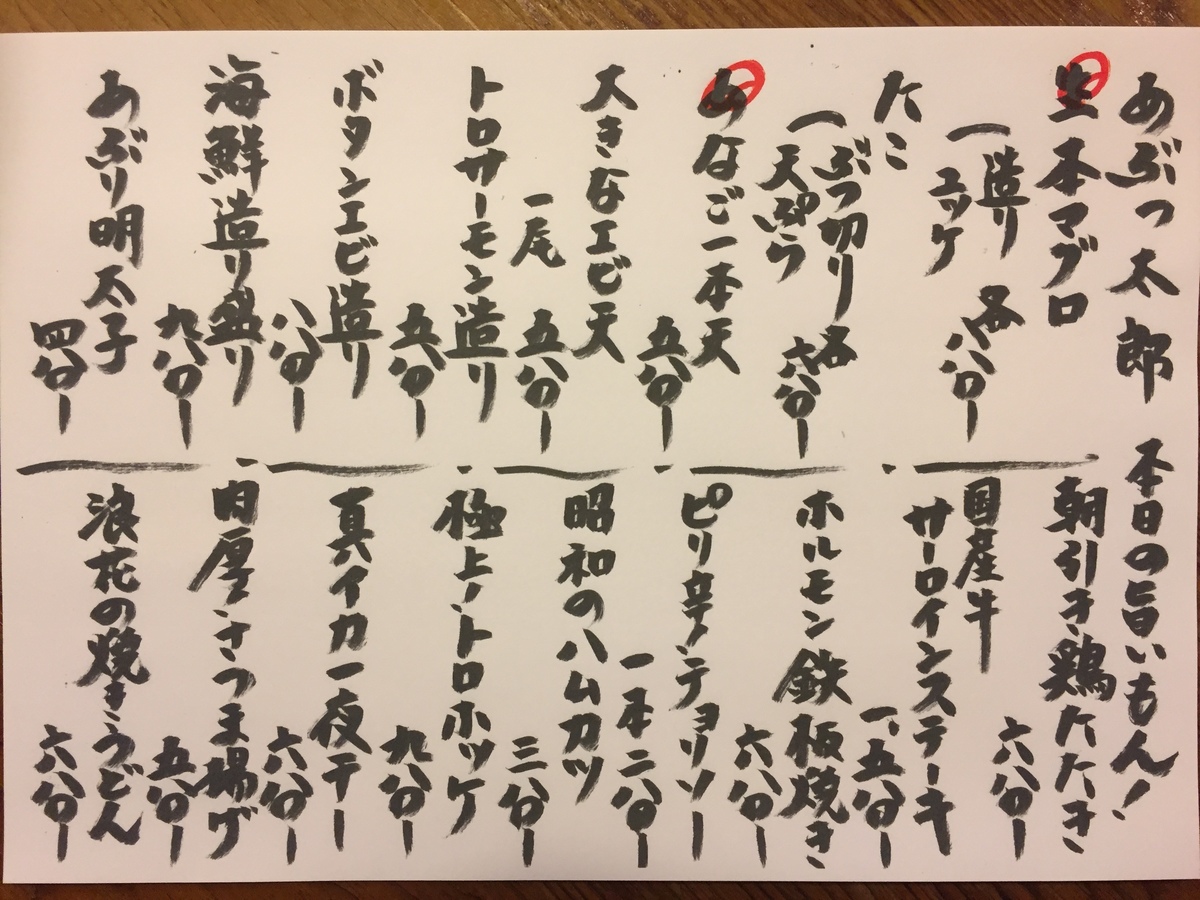 あぶつ太郎 本日の旨いもん!
生本マグロ
造り
ユッケ
各八八〇ー
たこ
ぶつ切り
天ぷら
各六八〇ー
あなご一本天
五八〇ー
大きなエビ天
一尾 五八〇ー
トロサーモン造り
五八〇ー
ボタンエビ造り
八八〇ー
海鮮造り盛り
九八〇ー
あぶり明太子
四八〇ー
朝引き鶏たたき
六八〇ー
国産牛
サーロインステーキ
一、五八〇ー
ホルモン鉄板焼き
六八〇ー
ピリ辛チョリソー
一本二八〇ー
昭和のハムカツ
三八〇ー
極上トロホッケ
九八〇ー
真イカ一夜干し
六八〇ー
肉厚さつま揚げ
五八〇ー
浪花の焼きうどん
六八〇ー